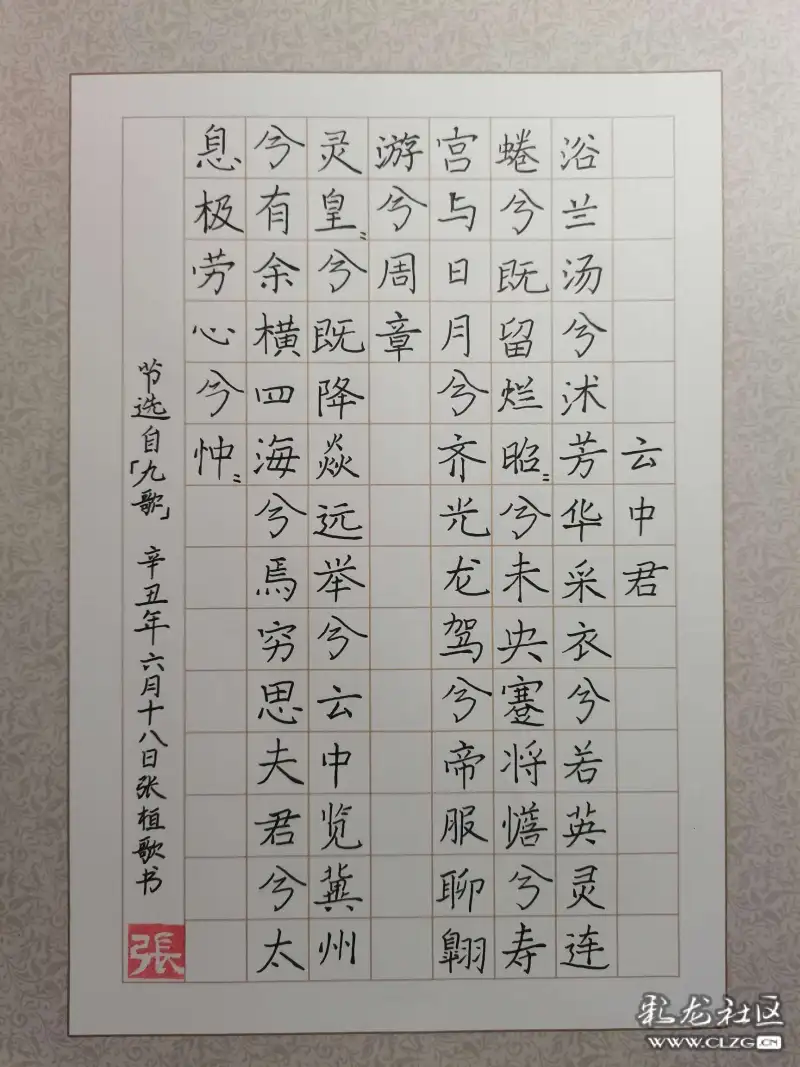 云中君
浴兰汤兮沭芳华采衣兮若英灵连
蜷兮既留烂昭〻兮未央蹇将憺兮寿
宫与日月兮齐光龙驾兮帝服聊翱
游兮周章
灵皇〻兮既降焱远举兮云中览冀州
兮有余横四海兮焉穷思夫君兮太
息极劳心兮忡〻
节选自「九歌」 辛丑年六月十八日张歌书
張
彩龙社区
WWW.CLZG.CN